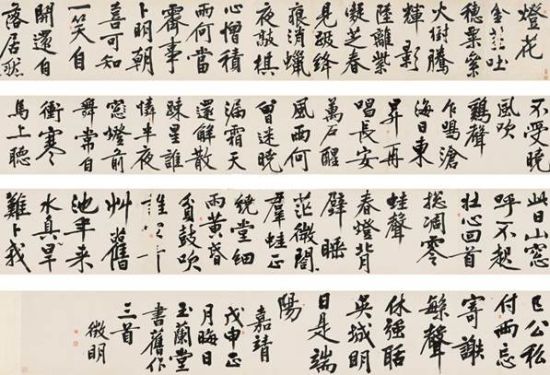 燈花
金吐
穗粲
火樹騰
輝影
陸離紫
凝芝春
見級鋒
痕消蠟
夜敲棋
心憎積
雨何當
霽事
卜明朝
喜可知
一笑自
開還自
落居然
不受曉
風吹
雞聲
乍鳴滄
海日東
昇再
唱長安
萬戶醒
風雨何
曾迷曉
漏霜天
還解散
疎星誰
憐半夜
窓燈前
舞常自
衝寒
馬上聽
此日山窓
呼不起
壯心回首
摠凋零
蛙聲
春燈背
壁睡
茫微聞
羣蛙正
繞堂細
雨黄昏
鼓吹
艸舊
池年来
水真旱
難卜我
已公私
付兩忘
寄謝
繁聲
休强聒
吳城明
日是端
陽
嘉靖
戊申正
月晦日
玉蘭堂
書舊作
三首
徵明